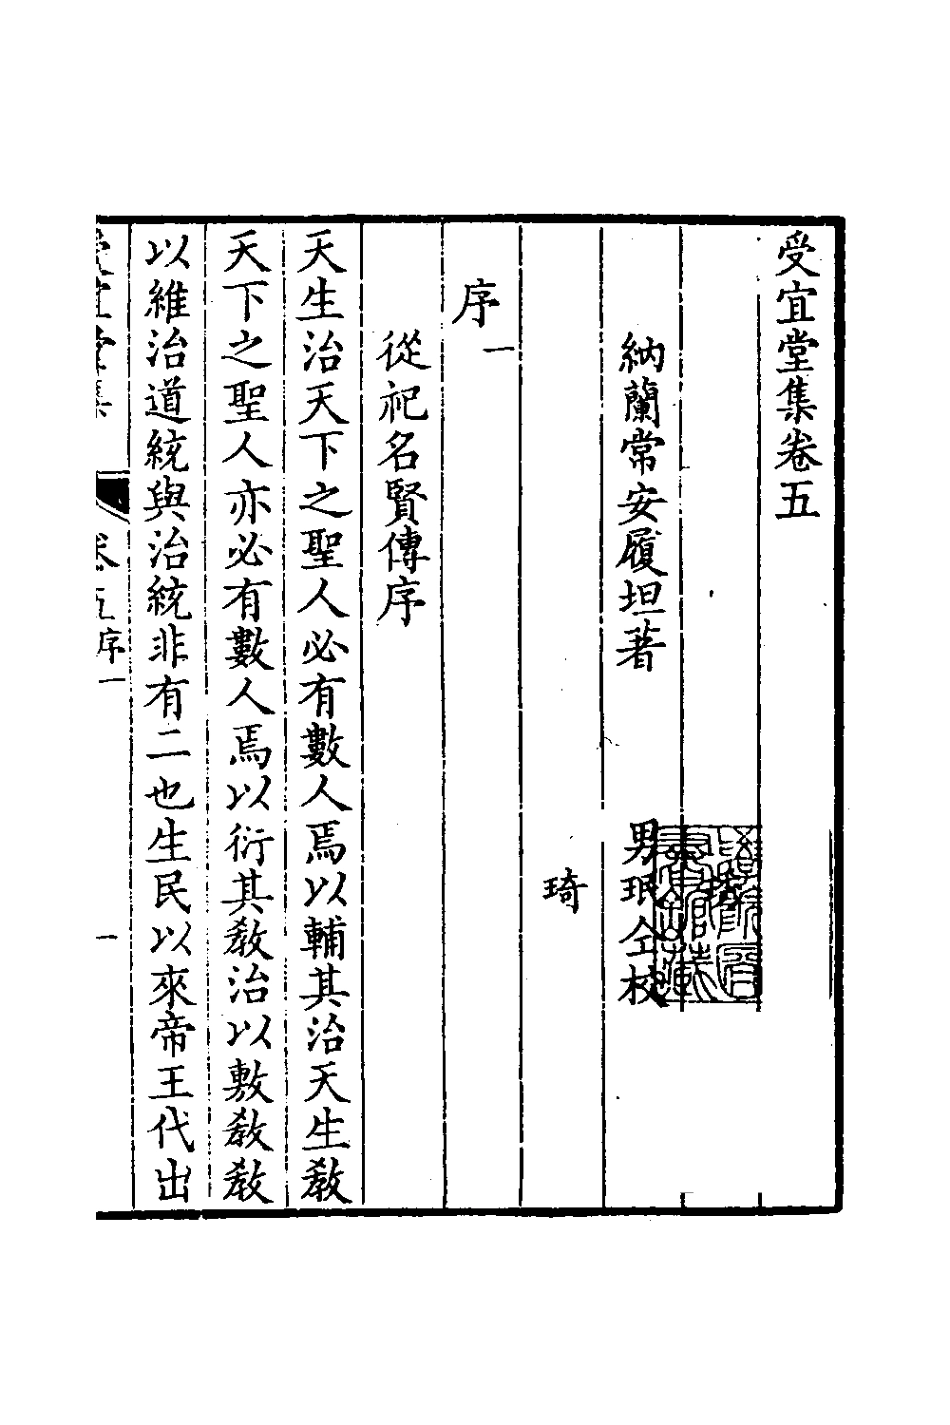 受宜堂集卷五
納蘭常安履坦著　男珉仝校
琦
序一
從祀名賢傳序
天生治天下之聖人必有數人焉以輔其治天生敎
天下之聖人亦必有數人焉以衍其敎治以敷敎敎
以維治道統與治統非有二也生民以來帝王代出
受宜堂集　卷五序一　一